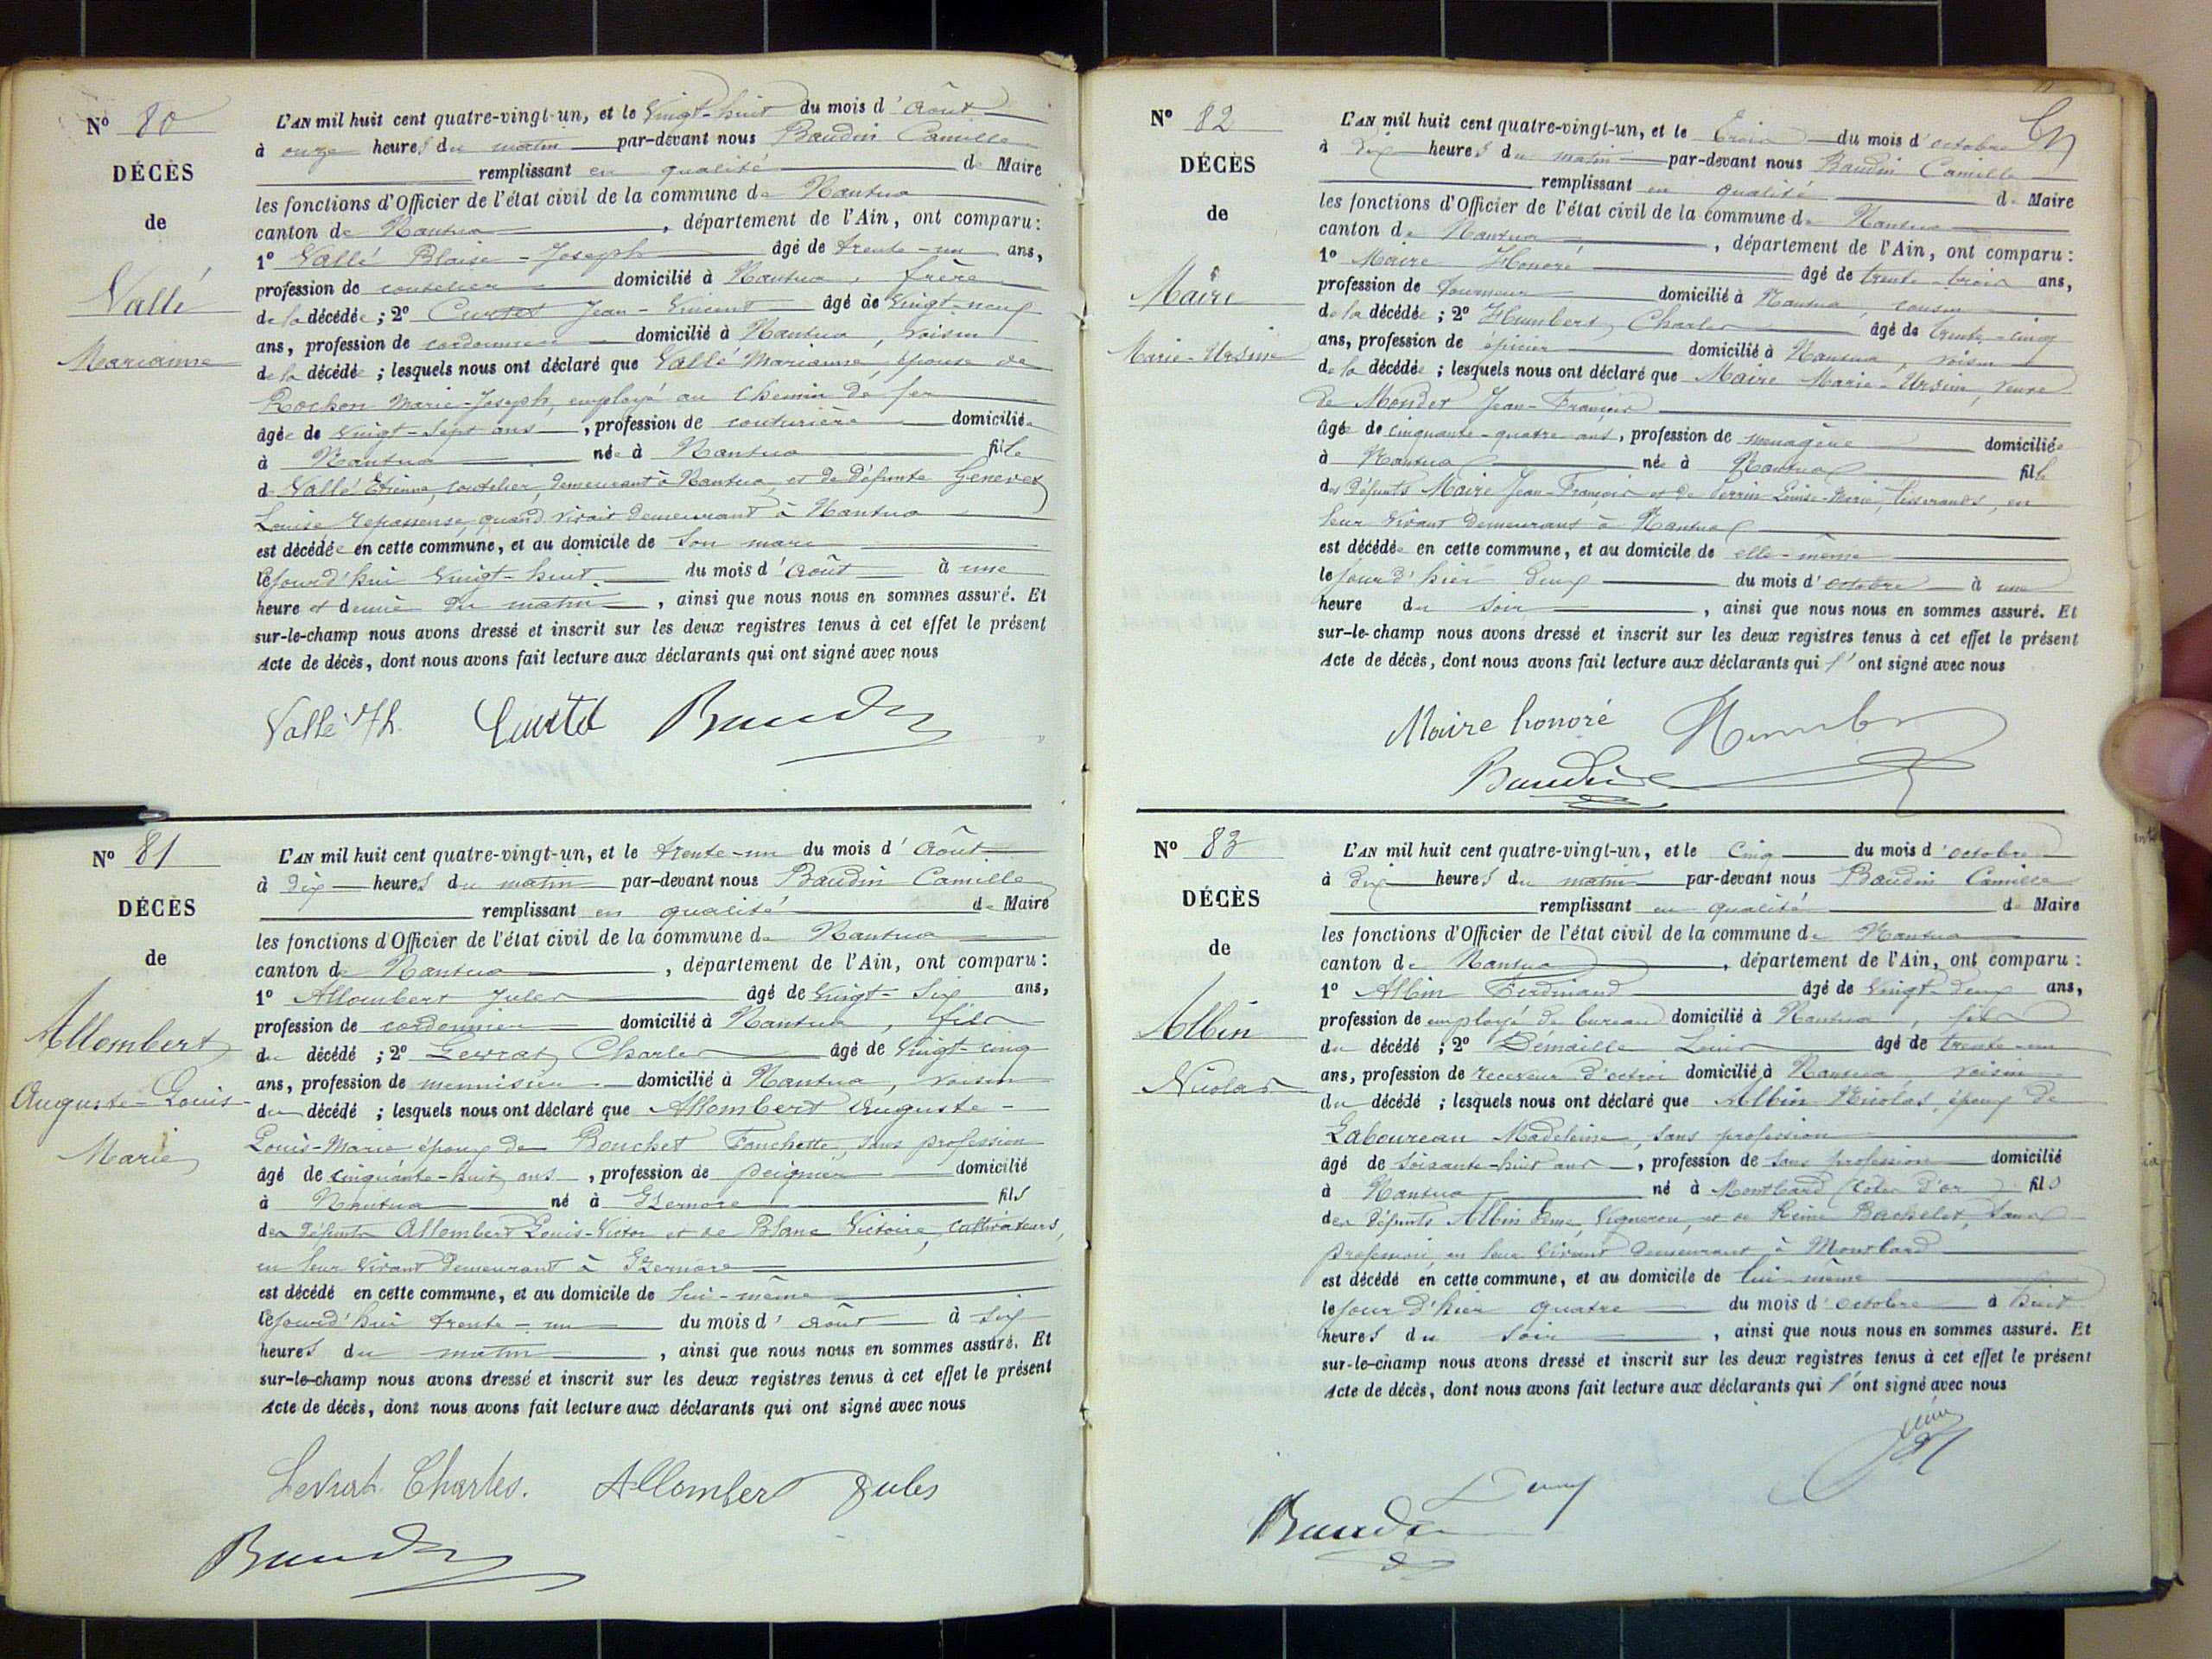 Nº 80
DÉCÈS
de
Vallé
Marianne
L'AN mil huit cent quatre-vingt-un, et le Vingt-huit du mois d'Août
à onze heures du matin par-devant nous Baudin Camille
remplissant en qualité de Maire
les fonctions d'Officier de l'état civil de la commune de Nantua
canton de Nantua, département de l'Ain, ont comparu:
1º Vallé Blaise-Joseph âgé de trente-un ans,
profession de coutelier domicilié à Nantua, frère
de la décédée; 2º Curtet Jean-Vincent âgé de Vingt-neuf
ans, profession de cordonnier domicilié à Nantua, voisin
de la décédée; lesquels nous ont déclaré que Vallé Marianne, épouse de
Rochon Marie-Joseph, employé au Chemin de fer
âgée de Vingt-Sept ans, profession de couturière domiciliée
à Nantua née à Nantua fille
de Vallé Etienne, coutelier, demeurant à Nantua et de Défunte Genevet
Louise repasseuse, quand vivait demeurant à Nantua
est décédée en cette commune, et au domicile de son mari
le jourd'hui Vingt-huit du mois d'Août à une
heure et demie du matin, ainsi que nous nous en sommes assuré. Et
sur-le-champ nous avons dressé et inscrit sur les deux registres tenus à cet effet le présent
Acte de décès, dont nous avons fait lecture aux déclarants qui ont signé avec nous
Vallé Jh. Curtet Baudin
Nº 81
DÉCÈS
de
Allombert
Auguste-Louis-
Marie
L'AN mil huit cent quatre-vingt-un, et le trente-un du mois d'Août
à Dix heures du matin par-devant nous Baudin Camille
remplissant en qualité de Maire
les fonctions d'Officier de l'état civil de la commune de Nantua
canton de Nantua, département de l'Ain, ont comparu:
1º Allombert Jules âgé de Vingt-Six ans,
profession de cordonnier domicilié à Nantua, fils
du décédé; 2º Levrat Charles âgé de Vingt-cinq
ans, profession de menuisier domicilié à Nantua, voisin
du décédé; lesquels nous ont déclaré que Allombert Auguste-
Louis-Marie époux de Bouchet Fanchette, sans profession
âgé de cinquante-huit ans, profession de peignier domicilié
à Nantua né à Izernore fils
des Défunts Allombert Louis-Victor et de Blanc Victoire, cultivateurs,
en leur Vivant demeurant à Izernore
est décédé en cette commune, et au domicile de lui-même
le jourd'hui trente-un du mois d'Août à Six
heures du matin, ainsi que nous nous en sommes assuré. Et
sur-le-champ nous avons dressé et inscrit sur les deux registres tenus à cet effet le présent
Acte de décès, dont nous avons fait lecture aux déclarants qui ont signé avec nous
Levrat Charles. Allombert Jules
Baudin
Nº 82
DÉCÈS
de
Maire
Marie-Ursine
L'AN mil huit cent quatre-vingt-un, et le Trois du mois d'octobre
à Dix heures du matin par-devant nous Baudin Camille
remplissant en qualité de Maire
les fonctions d'Officier de l'état civil de la commune de Nantua
canton de Nantua, département de l'Ain, ont comparu:
1º Maire Honoré âgé de trente-trois ans,
profession de Tourneur domicilié à Nantua, cousin
de la décédée; 2º Humbert Charles âgé de trente-cinq
ans, profession de épicier domicilié à Nantua, voisin
de la décédée; lesquels nous ont déclaré que Maire Marie-Ursine, veuve
de Mondet Jean-François
âgée de cinquante-quatre ans, profession de ménagère domiciliée
à Nantua née à Nantua fille
des Défunts Maire Jean-François et de Perrin Louise-Marie, tisserands, en
leur Vivant demeurant à Nantua
est décédée en cette commune, et au domicile de elle-même
le jour d'hier Deux du mois d'octobre à une
heure du soir, ainsi que nous nous en sommes assuré. Et
sur-le-champ nous avons dressé et inscrit sur les deux registres tenus à cet effet le présent
Acte de décès, dont nous avons fait lecture aux déclarants qui l'ont signé avec nous
Maire honoré Humber
Baudin
Nº 83
DÉCÈS
de
Albin
Nicolas
L'AN mil huit cent quatre-vingt-un, et le Cinq du mois d'octobre
à Dix heures du matin par-devant nous Baudin Camille
remplissant en qualité de Maire
les fonctions d'Officier de l'état civil de la commune de Nantua
canton de Nantua, département de l'Ain, ont comparu:
1º Albin Ferdinand âgé de Vingt-Deux ans,
profession de employé de bureau domicilié à Nantua, fils
du décédé; 2º Demaille Louis âgé de trente-un
ans, profession de receveur d'octroi domicilié à Nantua, voisin
du décédé; lesquels nous ont déclaré que Albin Nicolas, époux de
Laboureau Madeleine, sans profession
âgé de soixante-huit ans, profession de sans profession domicilié
à Nantua né à Montbard (Côte d'or) fils
des Défunts Albin Edme, Vigneron, et de Reine Bachelet, Sans
profession, en leur Vivant demeurant à Montbard
est décédé en cette commune, et au domicile de lui-même
le jour d'hier quatre du mois d'octobre à huit
heures du soir, ainsi que nous nous en sommes assuré. Et
sur-le-champ nous avons dressé et inscrit sur les deux registres tenus à cet effet le présent
Acte de décès, dont nous avons fait lecture aux déclarants qui l'ont signé avec nous
Baudin